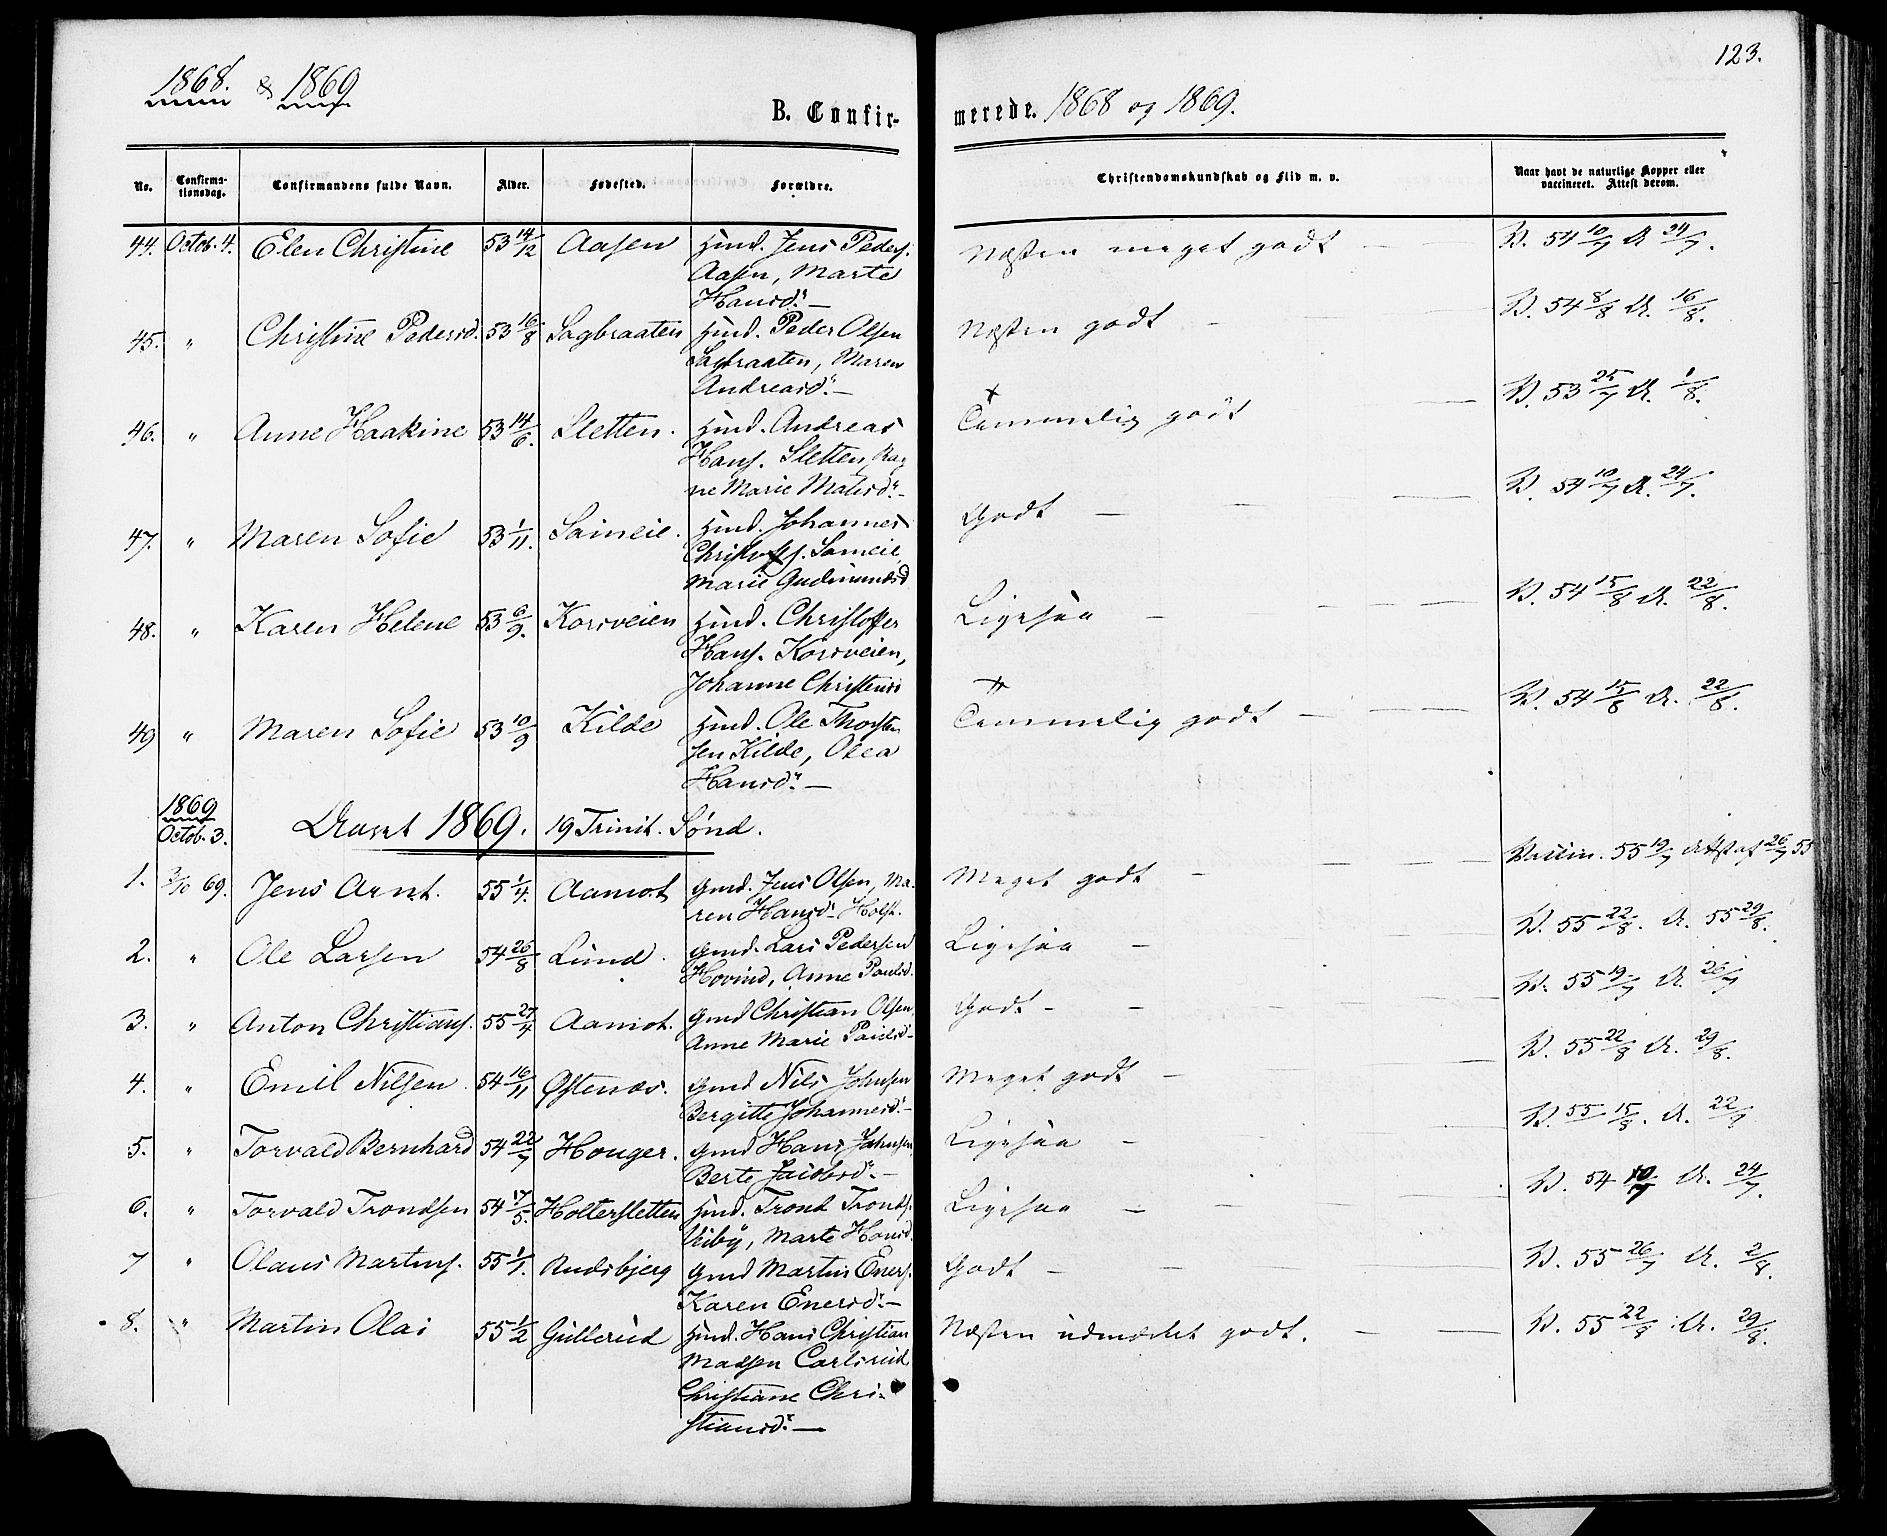 1868. & 1869
123.
B. Confir-
merede. 1868 og 1869.
No.
Confirma-
tionsdag.
Confirmandens fulde Navn.
Alder.
Fødested.
Forældre.
Christendomskundskab og Flid m. v.
Naar havt de naturlige Kopper eller
vaccineret. Attest derom.
44. Octob. 4. Elen Christine 53 14/12 Aasen Huusmd. Jens Peders. Næsten meget godt — V. 54 10/7 A 24/7.
Aasen, Marte
Hansd. —
45. " Christine Pedersd. 53 16/8 Sagbraaten Huusmd. Peder Olsen Næsten godt — V. 54 8/8 A. 16/8.
Sagbraaten, Maren
Andreasd. —
46. " Anne Haakine 53 14/6. Sletten. Huusmd. Andreas Temmelig godt — V. 53 25/7 A. 1/8.
Hans. Sletten, Rag
ne Marie Matisd. —
47. " Maren Sofie 53 1/11. Sameie. Huusmd. Johannes Godt — V. 54 10/7 A. 24/7.
Christoffs. Sameie
Marie Gudmundsd
48. " Karen Helene 53 6/9. Korsveien Huusmd. Christoffer Ligesaa — V. 54 15/8 A. 22/8.
Hans. Korsveien,
Johanne Christensd
49 " Maren Sofie 53 10/9 Kilde Huusmd. Ole Thorsten Temmelig godt — V. 54 15/8 A. 22/8.
sen Kilde, Olea
Hansd. —
1869
Octob. 3. Aaret 1869. 19 Trinit. Sønd.
1. 3/10 69. Jens Arnt. 55 1/4. Aamot Gmd. Jens Olsen, Ma- Meget godt — Vaccin. 55 19/7 Attst af 26/7 55
ren Hansd. Holst.
2. " Ole Larsen 54 26/8 Lund. Gmd. Lars Pedersen Ligesaa — V. 55 22/8. A. 55 29/8.
Hovind, Anne Paulsd.
3. " Anton Christians. 55 27/4 Aamot. Gmd Christian Olsen, Godt — V. 55 19/7 A. 26/7
Anne Marie Paulsd. —
4. " Emil Nilsen. 54 16/11 Østenæs. Gmd Nils Johnsen Meget godt — V. 55 22/8 A. 29/8.
Bergitte Johannesd. —
5. " Torvald Bernhard 54 22/7 Houger. Gmd Hans Johnsen, Ligesaa — V. 55 15/8. A. 22/8
Berte Jacobsd. —
6. " Torvald Trondsen 54 17/5. Holtersletten Huusmd. Trond Tronds. Ligesaa — V. 54 10/7 A. 24/7.
Viby, Marte Hansd.
7 " Olaus Martins. 55 1/1. Rudsbjerg Gmd Martin Eners. Godt — V. 55 26/7 A. 2/8.
Karen Enersd. —
8. " Martin Olai 55 1/2 Gullerud Huusmd. Hans Christian Næsten udmærket godt. — V. 55 22/8 A. 29/8.
Madsen Carlsrud,
Christiane Chri-
stiansd. —